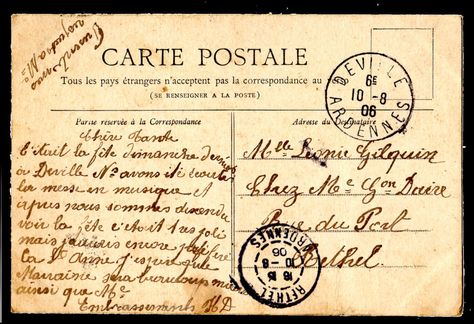 CARTE POSTALE
Tous les pays étrangers n'acceptent pas la correspondance au
(SE RENSEIGNER A LA POSTE)
Partie réservée à la Correspondance
Chère Tante
C'était la fête dimanche dernier
à Deville Ns avons été écouter
la messe en musique et
après nous sommes descendu
voir la fête c'était très joli
mais j'aurais encore préféré
la St Anne J'espère que
Marraine sera beaucoup mieux
ainsi que Me
Embrassements HD
Adresse du Destinataire
Melle Léonie Gilquin
Chez Me Gon Daire
Rue du Port
Rethel
DEVILLE
6E
10 - 8
06
ARDENNES
RETHEL
16 15
10 - 8
06
ARDENNES